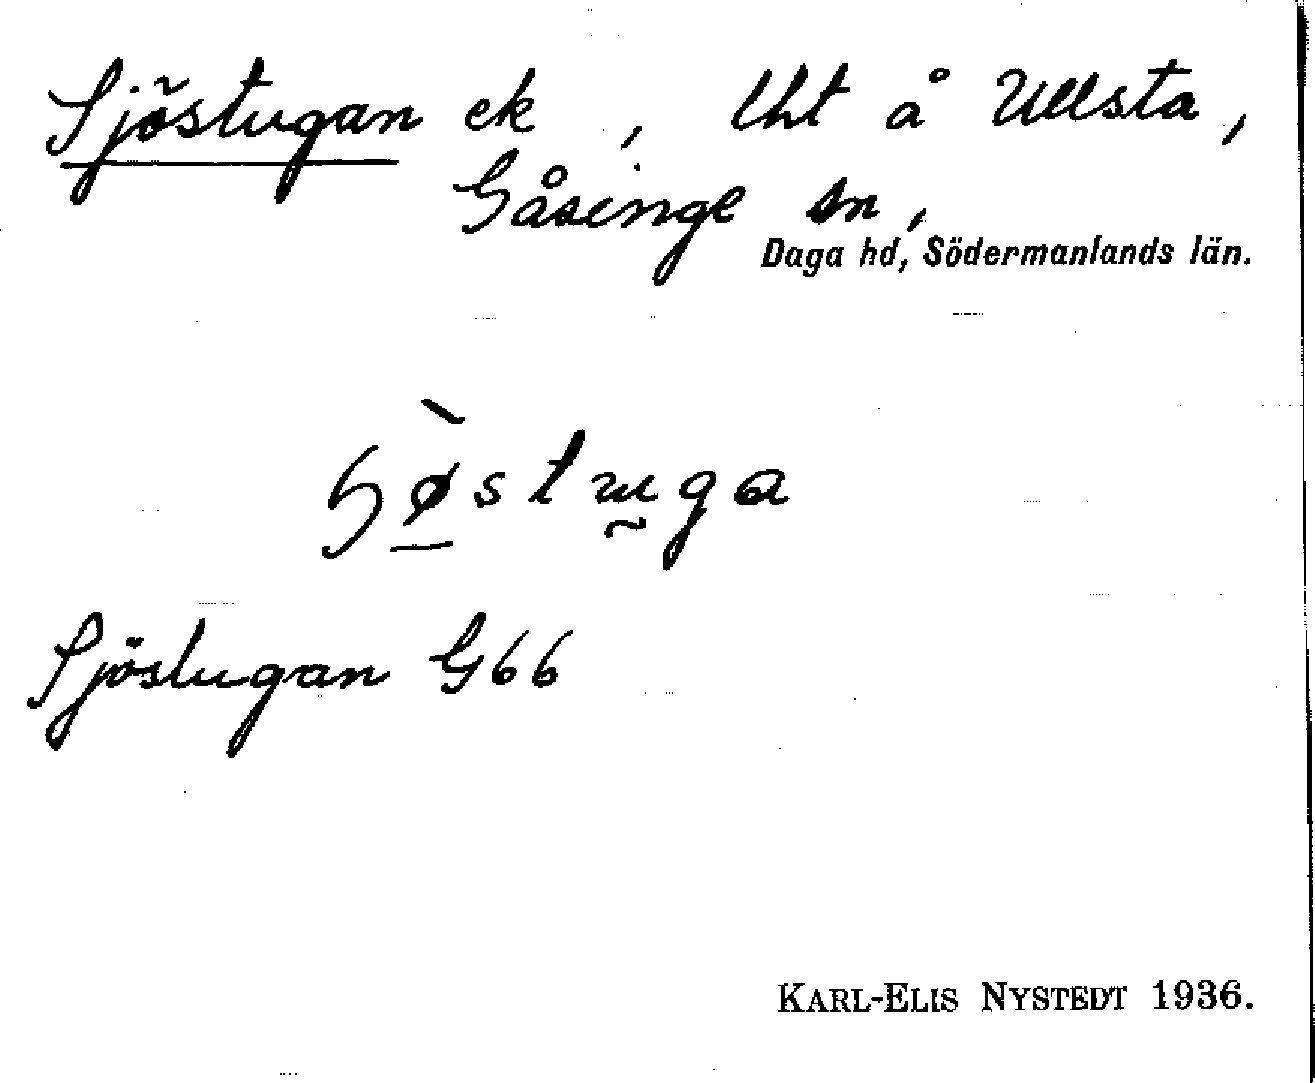 Sjöstugan ek, lht å Ullsta,
Gåsinge sn,
Daga hd, Södermanlands län.
Sjöstugan G66
KARL-ELIS NYSTEDT 1936.